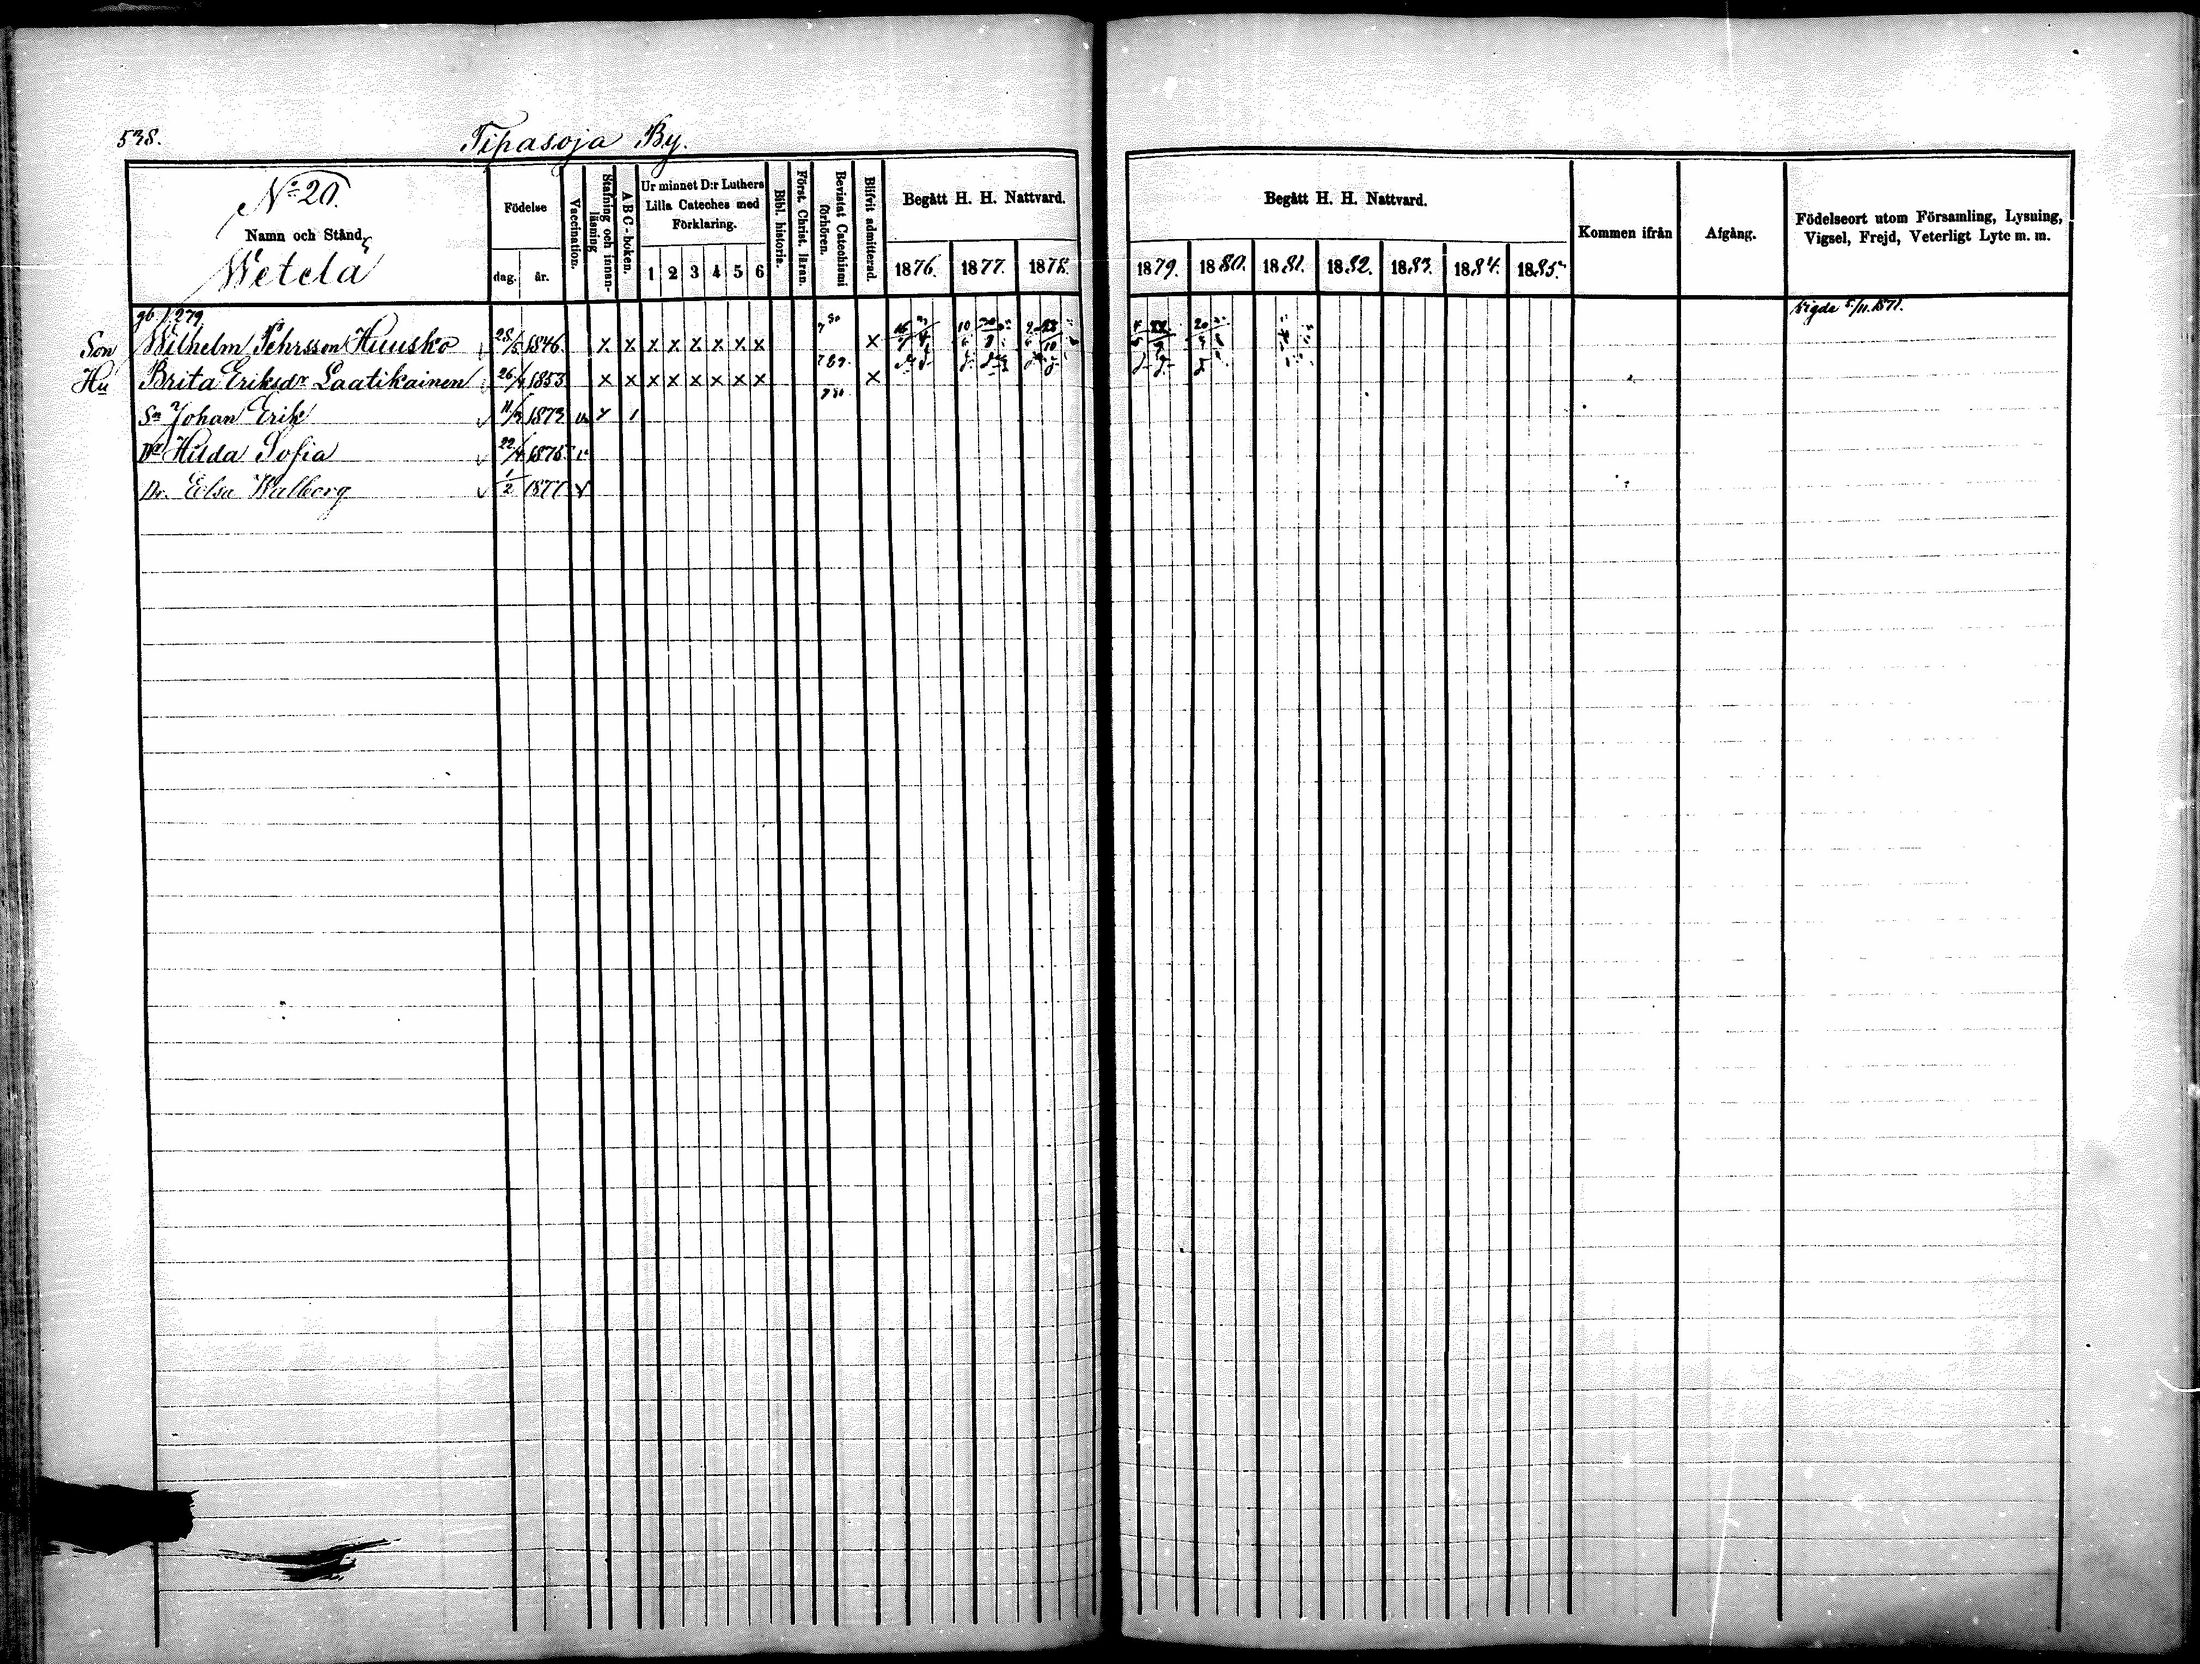 538.
Tipasoja By.
No 20.
Namn och Stånd,
Wetelä
Födelse
dag. år.
Vaccination.
Stafning och innan-läsning
A B C-boken.
Ur minnet D:r Luthers Lilla Cateches med Förklaring.
1 2 3 4 5 6
Bibl. historia.
Först. Christ. läran.
Bevistat Catechismi förhören.
Blifvit admitterad.
Begått H. H. Nattvard.
1876. 1877. 1878.
Begått H. H. Nattvard.
1879. 1880. 1881. 1882. 1883. 1884. 1885.
Kommen ifrån
Afgång.
Födelseort utom Församling, Lysning, Vigsel, Frejd, Veterligt Lyte m. m.
gb. 1.279
Vigde 5/11.1871.
Son Wilhelm Pehrsson Huusko 28/5 1846. x x x x x x x x x
Hu Brita Eriksdr Laatikainen 26/4 1853 x x x x x x x x x
Sn Johan Erik 11/3 1873
Dr Hilda Sofia 22/4 1875 v
Dr. Elsa Walborg 1/2 1877 v